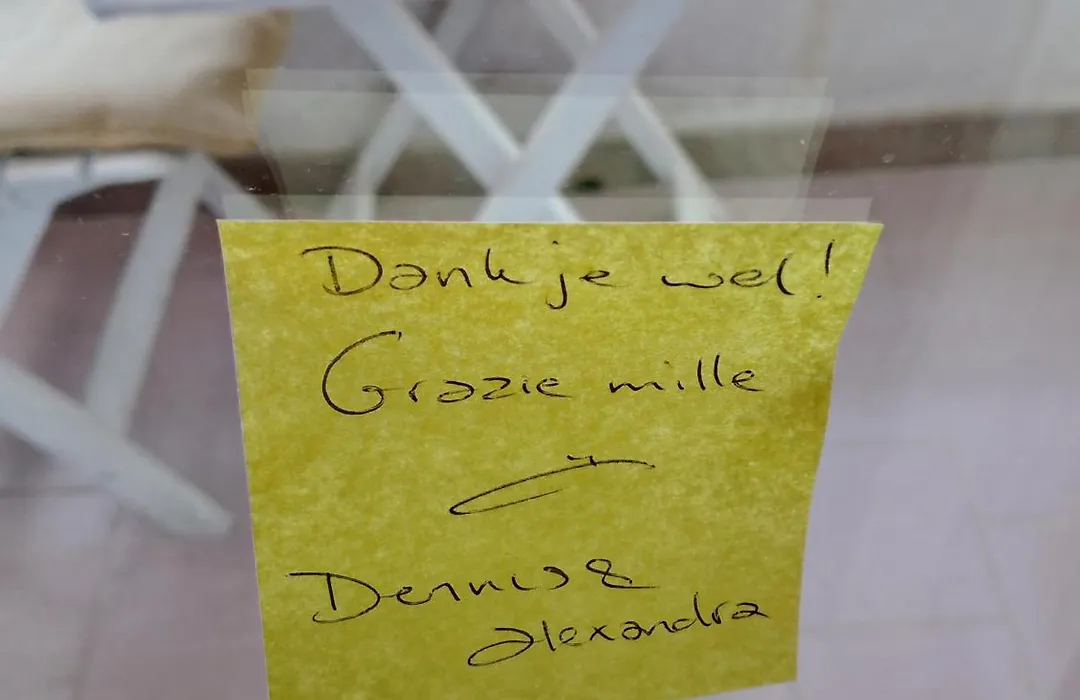 Dank je wel!
Grazie mille
Dennis &
alexandra